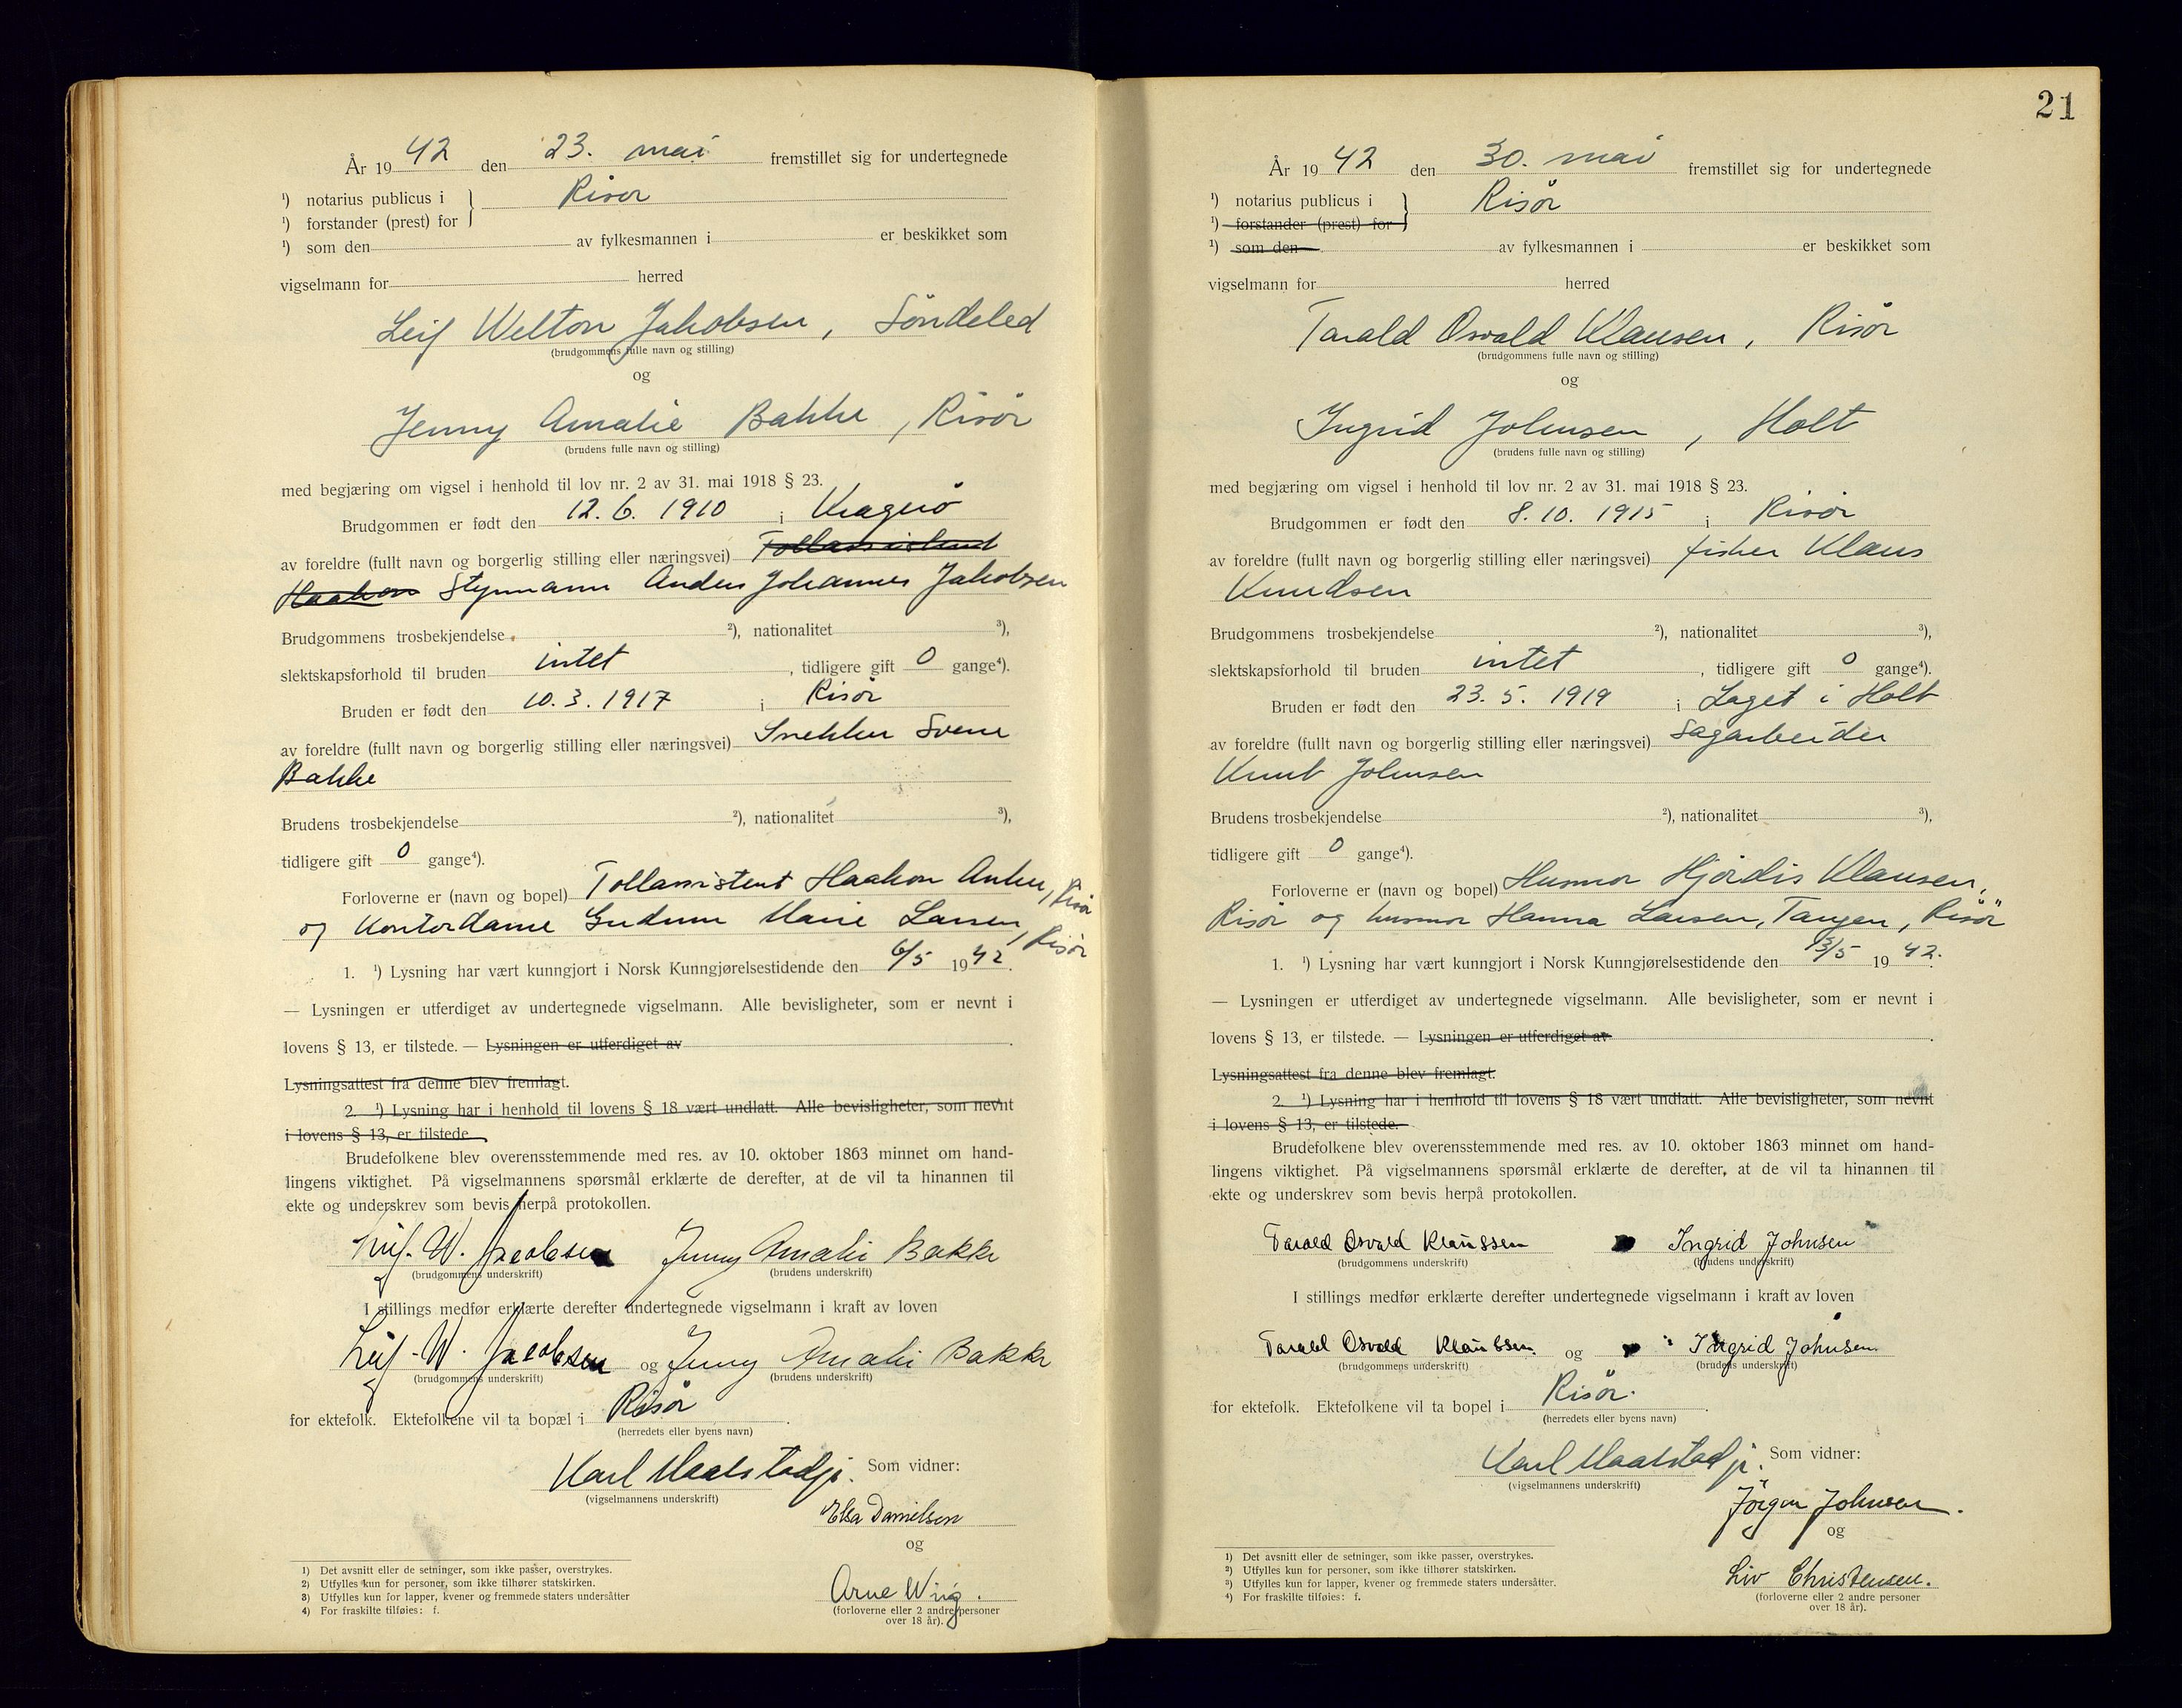 År 19 42 den 23. mai fremstillet sig for undertegnede
¹) notarius publicus i } Risør
¹) forstander (prest) for
¹) som den av fylkesmannen i er beskikket som
vigselmann for herred
Leif Welton Jakobsen, Söndeled
(brudgommens fulle navn og stilling)
og
Jenny Amalie Bakke, Risör
(brudens fulle navn og stilling)
med begjæring om vigsel i henhold til lov nr. 2 av 31. mai 1918 § 23.
Brudgommen er født den 12. 6. 1910 i Kragerö
av foreldre (fullt navn og borgerlig stilling eller næringsvei) Tollassistent
Haakon Styrmann Anders Johannes Jakobsen
Brudgommens trosbekjendelse ²), nationalitet ³),
slektskapsforhold til bruden intet, tidligere gift 0 gange⁴).
Bruden er født den 10. 3. 1917 i Risör
av foreldre (fullt navn og borgerlig stilling eller næringsvei) Snekker Svenn
Bakke
Brudens trosbekjendelse ²), nationalitet ³),
tidligere gift 0 gange⁴).
Forloverne er (navn og bopel) Tollassistent Haakon Anker, Risör
og Kontordame Gudrun Marie Larsen, Risör
1. ¹) Lysning har vært kunngjort i Norsk Kunngjørelsestidende den 6/5 1942.
— Lysningen er utferdiget av undertegnede vigselmann. Alle bevisligheter, som er nevnt i
lovens § 13, er tilstede. — Lysningen er utferdiget av .
Lysningsattest fra denne blev fremlagt.
2. ¹) Lysning har i henhold til lovens § 18 vært undlatt. Alle bevisligheter, som nevnt
i lovens § 13, er tilstede
Brudefolkene blev overensstemmende med res. av 10. oktober 1863 minnet om hand-
lingens viktighet. På vigselmannens spørsmål erklærte de derefter, at de vil ta hinannen til
ekte og underskrev som bevis herpå protokollen.
Leif. W. Jacobsen Jenny Amalie Bakke
(brudgommens underskrift) (brudens underskrift)
I stillings medfør erklærte derefter undertegnede vigselmann i kraft av loven
Leif. W. Jacobsen og Jenny Amalie Bakke
(brudgommens underskrift) (brudens underskrift)
for ektefolk. Ektefolkene vil ta bopæl i Risör.
(herredets eller byens navn)
Karl Maalstad jr. Som vidner:
(vigselmannens underskrift)
Elsa Danielsen
og
Arne Wiig.
(forloverne eller 2 andre personer
over 18 år).
1) Det avsnitt eller de setninger, som ikke passer, overstrykes.
2) Utfylles kun for personer, som ikke tilhører statskirken.
3) Utfylles kun for lapper, kvener og fremmede staters undersåtter
4) For fraskilte tilføies: f.
21
År 19 42 den 30. mai fremstillet sig for undertegnede
¹) notarius publicus i } Risör
¹) forstander (prest) for
¹) som den av fylkesmannen i er beskikket som
vigselmann for herred
Tarald Osvald Klausen, Risör
(brudgommens fulle navn og stilling)
og
Ingrid Johnsen, Holt
(brudens fulle navn og stilling)
med begjæring om vigsel i henhold til lov nr. 2 av 31. mai 1918 § 23.
Brudgommen er født den 8. 10. 1915 i Risör
av foreldre (fullt navn og borgerlig stilling eller næringsvei) fisker Klaus
Knudsen
Brudgommens trosbekjendelse ²), nationalitet ³),
slektskapsforhold til bruden intet, tidligere gift 0 gange⁴).
Bruden er født den 23. 5. 1919 i Laget i Holt
av foreldre (fullt navn og borgerlig stilling eller næringsvei) Sagarbeider
Knut Johnsen
Brudens trosbekjendelse ²), nationalitet ³),
tidligere gift 0 gange⁴).
Forloverne er (navn og bopel) Husmor Hjördis Klausen,
Risör og husmor Hanna Larsen, Tangen, Risör
1. ¹) Lysning har vært kunngjort i Norsk Kunngjørelsestidende den 13/5 1942.
— Lysningen er utferdiget av undertegnede vigselmann. Alle bevisligheter, som er nevnt i
lovens § 13, er tilstede. — Lysningen er utferdiget av .
Lysningsattest fra denne blev fremlagt.
2. ¹) Lysning har i henhold til lovens § 18 vært undlatt. Alle bevisligheter, som nevnt
i lovens § 13, er tilstede.
Brudefolkene blev overensstemmende med res. av 10. oktober 1863 minnet om hand-
lingens viktighet. På vigselmannens spørsmål erklærte de derefter, at de vil ta hinannen til
ekte og underskrev som bevis herpå protokollen.
Tarald Osvald Klaussen Ingrid Johnsen
(brudgommens underskrift) (brudens underskrift)
I stillings medfør erklærte derefter undertegnede vigselmann i kraft av loven
Tarald Osvald Klaussen og Ingrid Johnsen
(brudgommens underskrift) (brudens underskrift)
for ektefolk. Ektefolkene vil ta bopel i Risör.
(herredets eller byens navn)
Karl Maalstad jr. Som vidner:
(vigselmannens underskrift)
Jörgen Johnsen.
og
Liv Christensen.
(forloverne eller 2 andre personer
over 18 år).
1) Det avsnitt eller de setninger, som ikke passer, overstrykes.
2) Utfylles kun for personer, som ikke tilhører statskirken.
3) Utfylles kun for lapper, kvener og fremmede staters undersåtter.
4) For fraskilte tilføies: f.